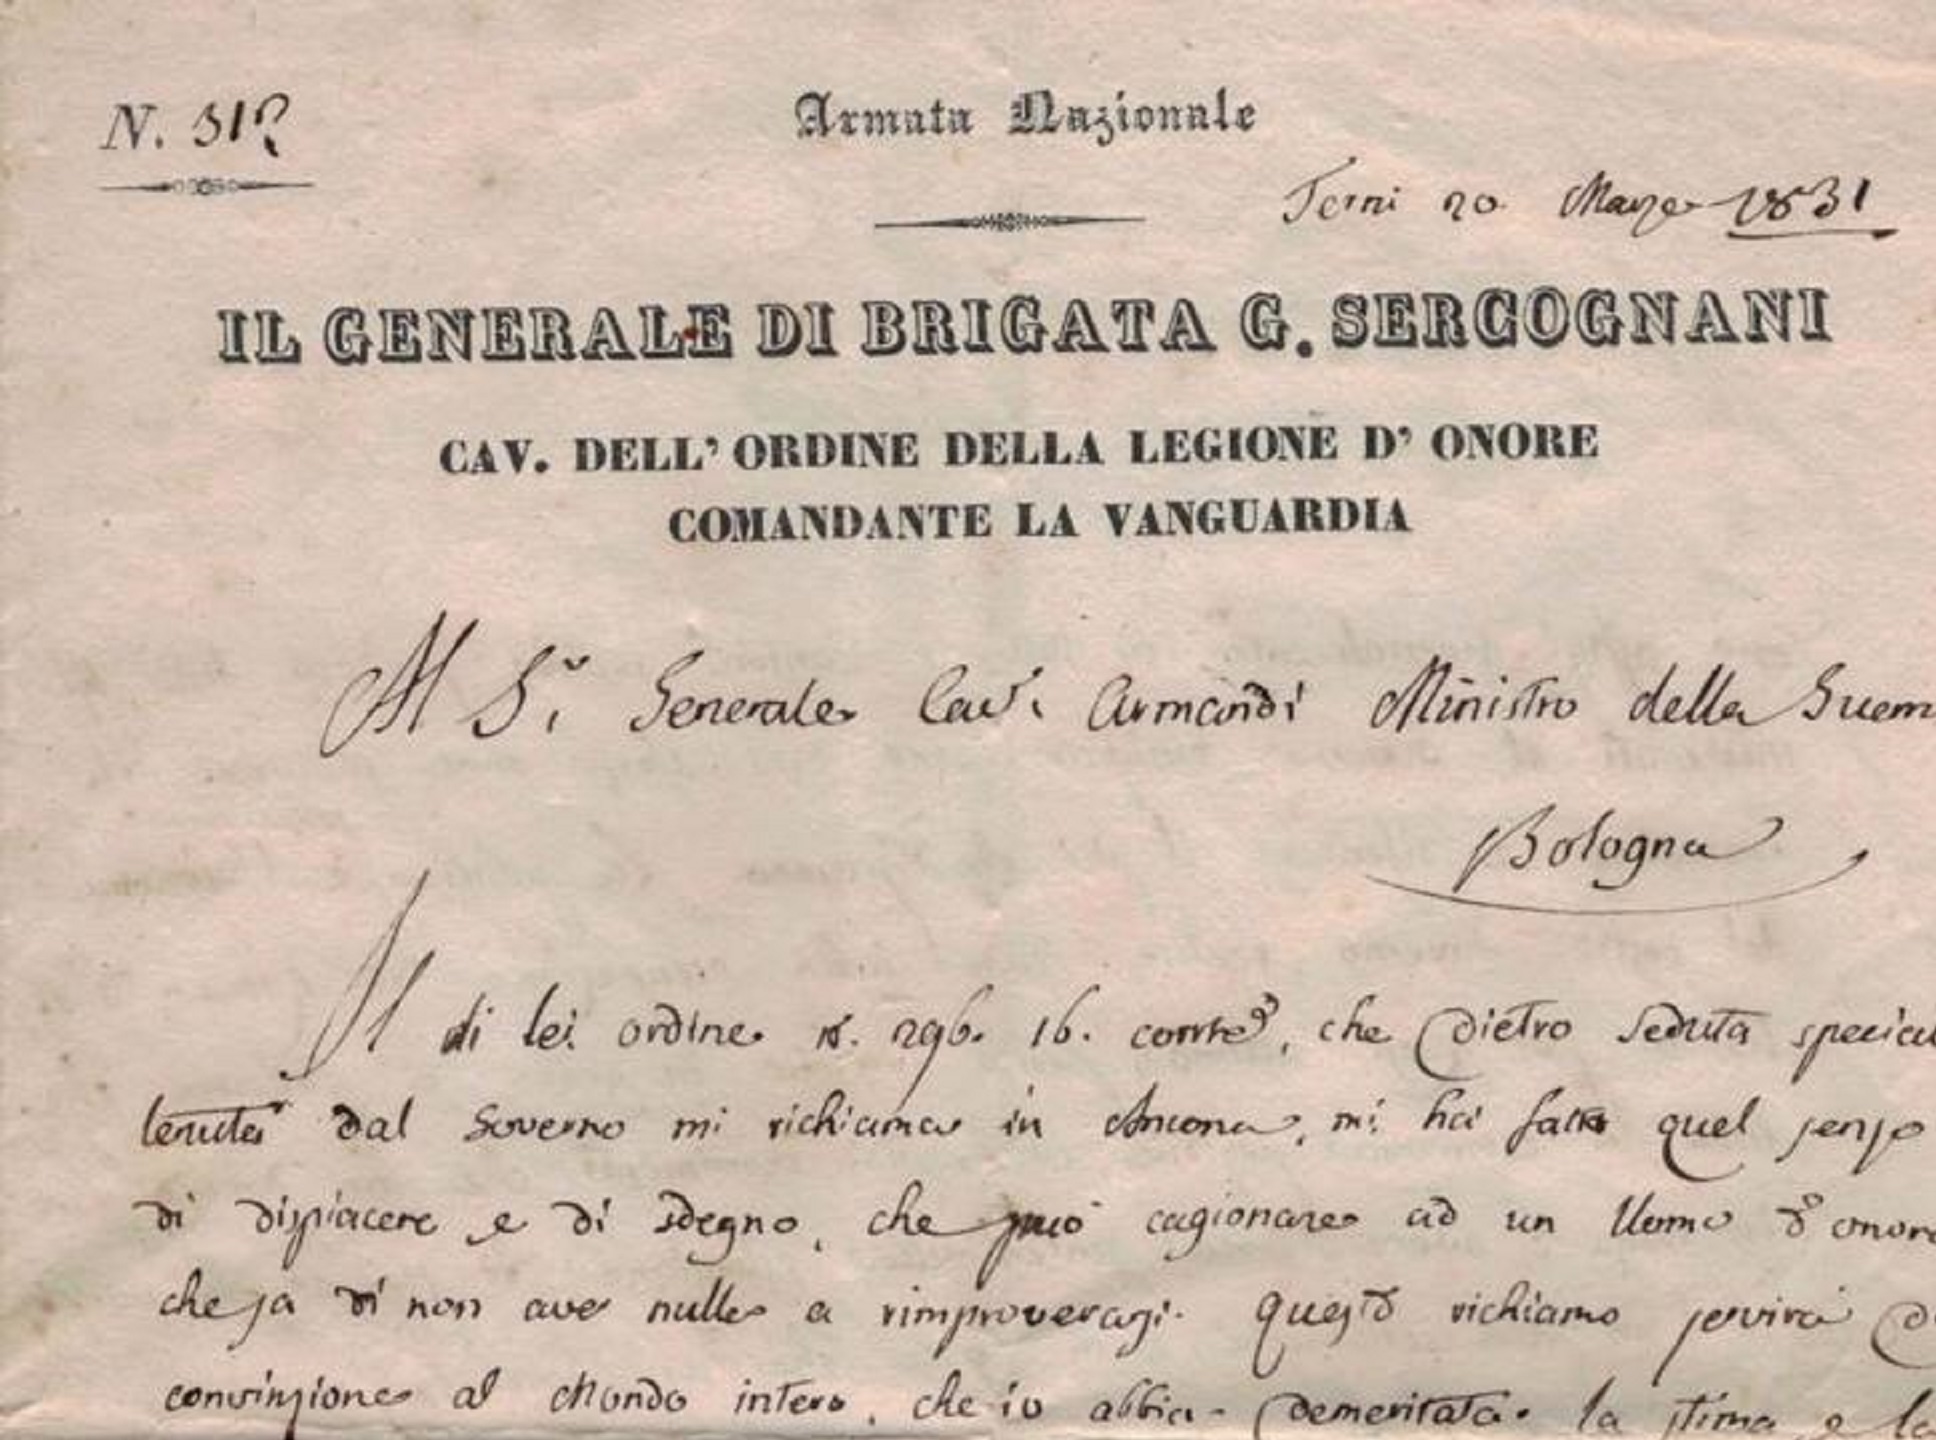 N. 312
Armata Nazionale
Terni 20 Marzo 1831
IL GENERALE DI BRIGATA G. SERCOGNANI
CAV. DELL' ORDINE DELLA LEGIONE D' ONORE
COMANDANTE LA VANGUARDIA
Al S.r Generale Cav. Armandi Ministro della Guerr
Bologna
Il di lei ordine N. 296. 16. corrte, che dietro seduta specia
tenuta dal Governo mi richiama in Ancona, mi ha fatto quel senso
di dispiacere e di sdegno, che può cagionare ad un Uomo d'onore
che sa di non aver nulla a rimproverarsi. Questo richiamo servirà
convinzione al Mondo intero, che io abbia demeritata la stima e la